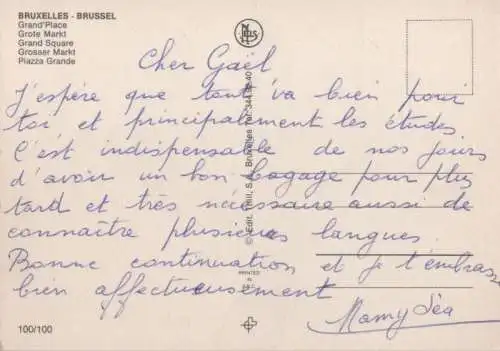 BRUXELLES - BRUSSEL
Grand'Place
Grote Markt
Grand Square
Grosser Markt
Piazza Grande
Cher Gaël
J'espère que tout va bien pour
toi et principalement les études
C'est indispensable de nos jours
d'avoir un bon bagage pour plus
tard et très nécessaire aussi de
connaître plusieurs langues.
Bonne continuation et je t'embrasse
bien affectueusement
Mamy Léa
© Edit. Thill, S.A. Bruxelles Tel.
PRINTED
100/100